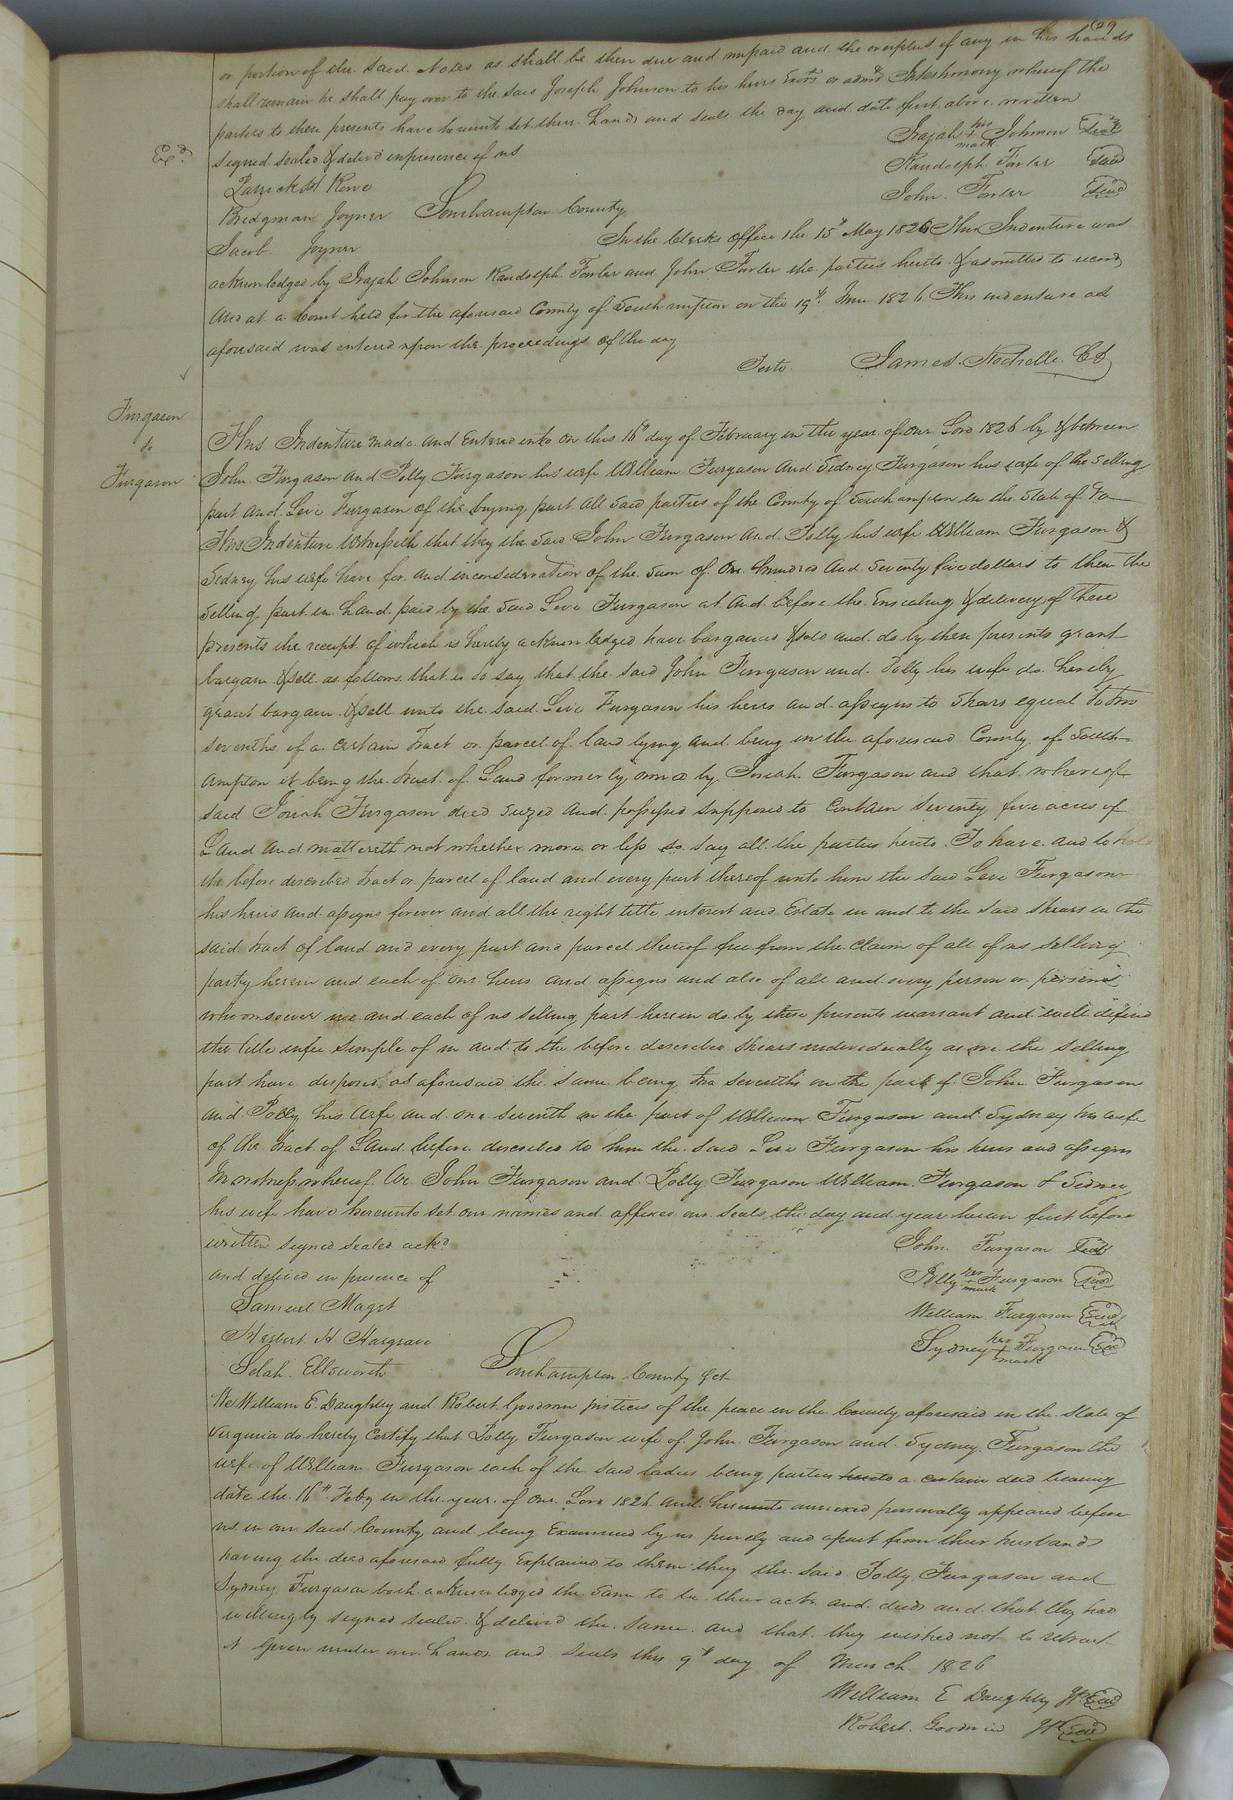 or portion of the said Notes as shall be then due and unpaid and the overplus if any in his hands
shall remain he shall pay over to the said Joseph Johnson to his heirs Exors or admrs In testimony whereof the
parties to these presents have hereunto set their hands and seals the day and date first above written
signed sealed & delivd in presence of us
Isajah his + mark Johnson Seal
Randolph Fowler Seal
John Fowler Seal
Bridgman Joyner Southampton County
Jacob Joyner
In the Clerks Office the 15th May 1826 This Indenture was
acknowledged by Isajah Johnson Randolph Fowler and John Fowler the parties hereto & admitted to record
And at a Court held for the aforesaid County of Southampton on the 19th June 1826 This indenture as
aforesaid was entered upon the proceedings of the day
Teste James Rochelle CC
Furgason
to
Furgason
This Indenture made and Entered into on this 16th day of February in the year of our Lord 1826 by & between
John Furgason and Polly Furgason his wife William Furgason and Sidney Furgason his wife of the Selling
part and Levi Furgason of the buying part all said parties of the County of Southampton in the State of Va
This Indenture Witnesseth that they the said John Furgason and Polly his wife William Furgason &
Sidney his wife have for and in consideration of the sum of One hundred and Seventy five dollars to them the
Selling part in hand paid by the said Levi Furgason at and before the Ensealing & delivery of these
presents the receipt of which is hereby acknowledged have bargained & sold and do by these presents grant
bargain & sell as follows that is to say that the said John Furgason and Polly his wife do hereby
grant bargain & sell unto the said Levi Furgason his heirs and assigns to shears equal to two
sevenths of a certain tract or parcel of land lying and being in the aforesaid County of South
ampton it being the tract of Land formerly ownd by Josiah Furgason and that whereof
said Josiah Furgason died seized and possessed supposed to contain Seventy five acres of
Land and mattereth not whether more or less so say all the parties hereto To have and to hold
the before described tract or parcel of land and every part thereof unto him the said Levi Furgason
his heirs and assigns forever and all the right title interest and Estate in and to the said shears in the
said tract of land and every part and parcel thereof free from the claim of all of us selling
party herein and each of our heirs and assigns and also of all and every person or persons
whomsoever we and each of us selling part herein do by these presents warrant and will defend
the title in fee simple of in and to the before described shears individually as we the selling
part have disposed as aforesaid the same being two sevenths on the part of John Furgason
and Polly his wife and one seventh on the part of William Furgason and Sydney his wife
of the tract of Land before described to him the said Levi Furgason his heirs and assigns
In witness whereof We John Furgason and Polly Furgason William Furgason & Sidney
his wife have hereunto set our names and affixed our seals the day and year herein first before
written signed sealed ackd
and delivd in presence of
John Furgason Seal
Polly her + mark Furgason Seal
William Furgason Seal
Sydney her + mark Furgason Seal
Samuel Maget
Herbert H Hargrave
Selah Ellsworth
Southampton County Sct
We William E. Daughtry and Robert Goodwin justices of the peace in the County aforesaid in the State of
Virginia do hereby Certify that Polly Furgason wife of John Furgason and Sydney Furgason the
wife of William Furgason each of the said ladies being parties hereto a certain deed bearing
date the 16th Feby in the year of our Lord 1826 and hereunto annexed personally appeared before
us in our said County and being Examined by us privily and apart from their husbands
having the deed aforesaid fully Explained to them they the said Polly Furgason and
Sydney Furgason both acknowledged the same to be their acts and deeds and that they had
willingly signed sealed & delivd the same and that they wished not to retract
it Given under our hands and seals this 9th day of March 1826
William E Daughtry JP Seal
Robert Goodwin JP Seal